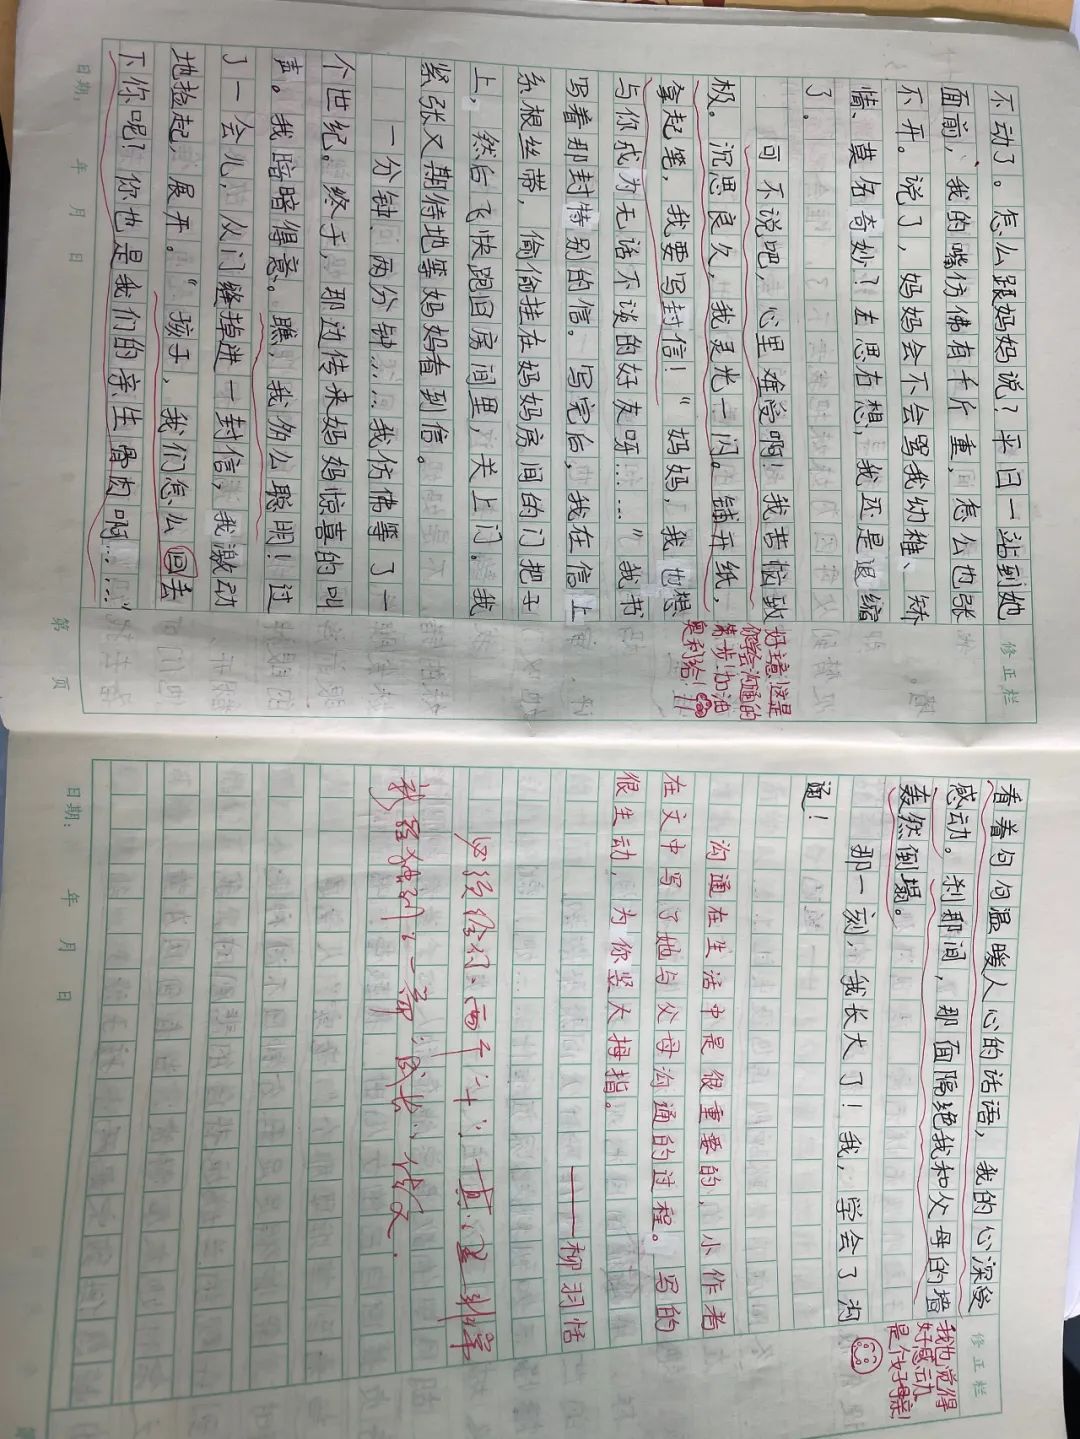 修正栏
不动了。怎么跟妈妈说？平日一站到她
面前，我的嘴仿佛有千斤重，怎么也张
不开。说了，妈妈会不会骂我幼稚、矫
情、莫名奇妙？左思右想，我还是退缩
了。
可不说吧，心里难受啊！我苦恼致
极。沉思良久，我灵光一闪。铺开纸，
拿起笔，我要写封信！“妈妈，我也想
与你成为无话不谈的好友呀……”我书
写着那封特别的信。写完后，我在信上
系根丝带，偷偷挂在妈妈房间的门把手
上，然后飞快跑回房间里，关上门。我
紧张又期待地等妈妈看到信。
一分钟、两分钟……我仿佛等了一
个世纪。终于，那边传来妈妈惊喜的叫
声。我暗暗得意。瞧，我多么聪明！过
了一会儿，从门缝掉进一封信，我激动
地捡起，展开。“孩子，我们怎么回丢
下你呢？你也是我们的亲生骨肉啊……”
好主意！这是
你学会沟通的
第一步！加油
奥利给！
日期： 年 月 日
第 页
修正栏
看着句句温暖人心的话语，我的心深受
感动。刹那间，那面隔绝我和父母的墙
轰然倒塌。
那一刻，我长大了！我，学会了沟
通！
我也觉得
好感动
沟通在生活中是很重要的，小作者
在文中写了她与父母沟通的过程。写的
很生动，为你竖大拇指。
——柳羽恬
日期： 年 月 日